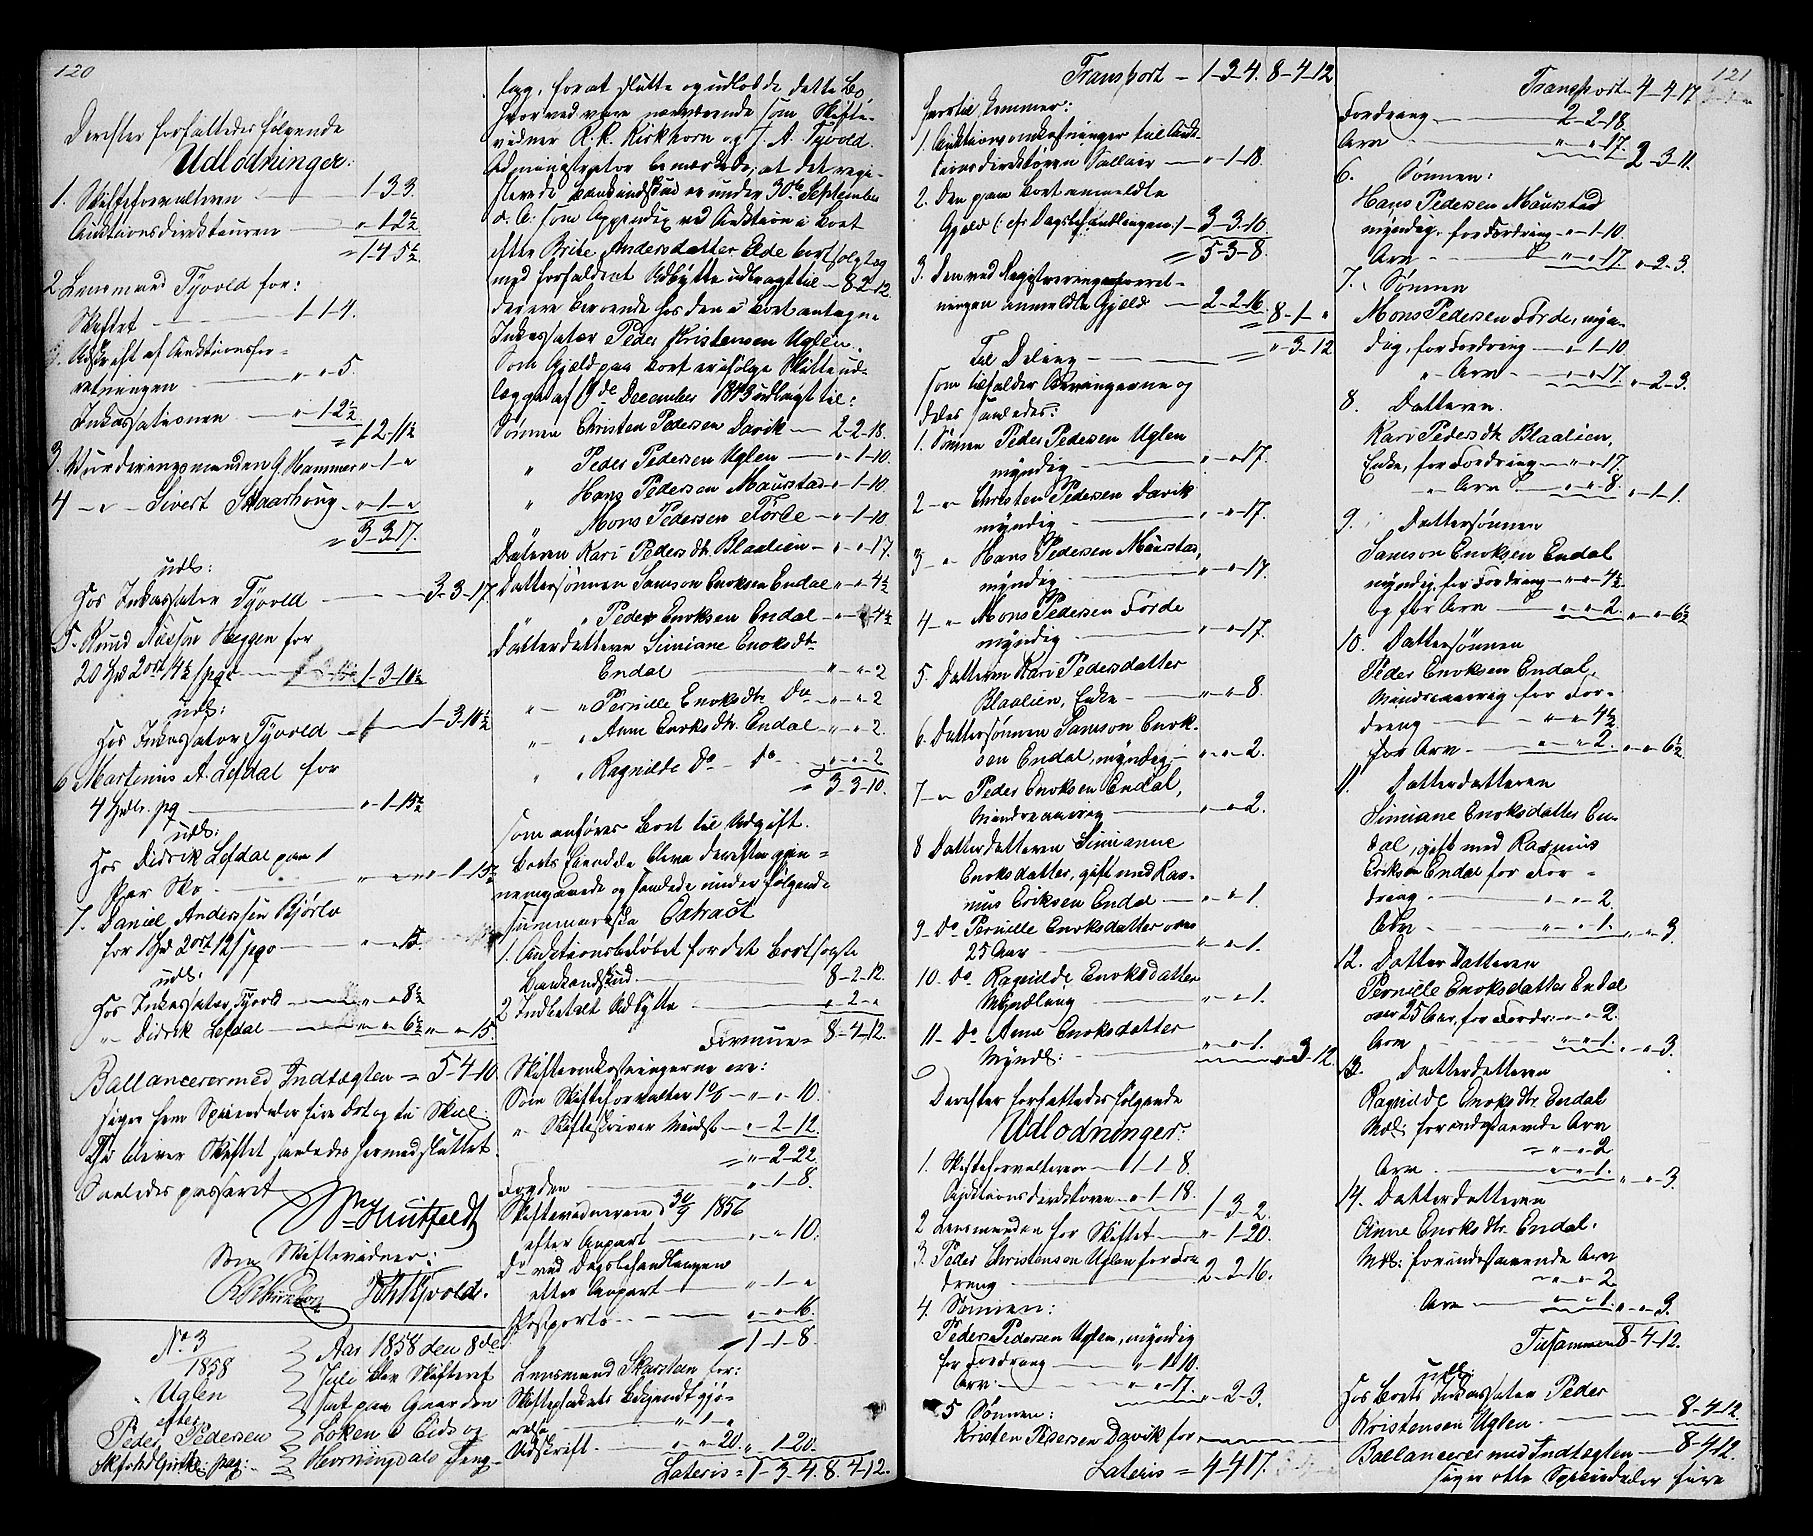 120
Derefter forfattedes følgende
Udlodninger:
1. Skifteforvalteren 1 3 3.
Auktionsdirekteuren " 1 2½
= 1 4 5½
2 Lensmand Tyvold for:
Skiftet 1-1-4.
Udskrift af Auktionsfor=
retningen " " 5.
Inkassationen " 12½
= 1-2-11½
3. Wurderingsmanden G. Hammer " 1 "
4 " Sivert Skaarhoug " 1 "
= 3-3-17.
udl:
Hos Inkassator Tyvold 3-3-17.
5. Knud Heggen for
1-3-10½
udl:
Hos Inkassator Tyvold 1-3-10½
6 Martinus A. Lefdal for
" 1-15½
udl:
Hos Didrik Lefdal paa 1
Par Sko " 1-15½
7. Daniel Anderssen Bjørlo
" " 15.
udl.
Hos Inkassator Tyvold " " 8½
" Didrik Lefdal " " 6½ " " 15.
Ballancerer med Indtægten = 5-4-10
siger fem Speciedaler fire Ort og ti Skill.
Da bliver Skiftet saaledes hermed sluttet.
Saaledes passeret
Huitfeldt
Som Skiftevidner:
No 3
1858
Uglen
efter
Peder Pedersen
Aar 1858 den 8de
Juli blev Skifteret
sat paa Gaarden
Løken i Eids og
Hornindals Ting=
lag, for at slutte og udlodde dette Bo
hvorved vare nærværende som Skifte=
vidner R. R. Kirkhorn og J. A. Tyvold.
Administrator bemærkede, at det regi=
strerede Bænkindskud er under 30te September
d. A. som Appendix ved Auktion i Boet
efter Brite Andersdatter Eide bortsolgt og
med forfaldent Udbytte udbragt til 8-2-12.
der ere beroende hos den i Boet antagne
Inkassator Peder Christensen Uglen.
Som Gjæld paa Boet er ifølge Skifteud=
lægget af 19de December 1843 udlagt til:
Sønnen Christen Pedersen Davik 2-2-18.
" Peder Pedersen Uglen " 1-10.
" Hans Pedersen Maurstad " 1-10.
" Mons Pedersen Førde " 1-10
Datteren Kari Pedersdtr. Blaalien " " 17.
Dattersønnen Samson Enoksen Endal " " 4½
" " Peder Enoksen Endal " " 4½
Datterdatteren Simiane Enoksdtr
Endal " " 2
" " Pernille Enoksdtr. Do " " 2
" " Anne Enoksdtr. Endal " " 2.
" " Ragnilde Do Do " " 2
= 3-3-10.
som anføres Boet til Udgift.
Boets Eiendele bleve derefter gjen=
nemgaaede og samlede under følgende
summariske Extract
1. Auktionsbeløbet for det bortsolgte
Bænkindskud 8-2-12.
2 Indbetalt Udbytte " 2 "
Formue = 8-4-12.
Skifteomkostningerne ere:
Som Skifteforvalter " " 10.
" Skifteskriver Mindst " 2-12.
= " 2-22.
Fogden " 1-8.
Skiftevidnerne 30/9 1856
efter Anpart " " 10.
Do ved Dagsbehandlingen
efter Anpart " 1 "
Postporto " " 16.
= 1-1-8.
Lensmand Skarsteen for:
Skifteplakats Bekjendtgjø=
relse " 1 "
Udskrift " " 20. " 1-20.
Lateris = 1-3-4. 8-4-12.
Transport 1-3-4. 8-4-12
hertil kommer:
1. Auktionsomkostninger til Auk=
tionsdirektøren " 1-18.
2. Den paa Boet anmeldte
Gjæld (: cfr Dagsbehandlingen:) 3-3-10.
= 5-3-8.
3. Den ved Registreringsforret=
ningen anmeldte Gjæld 2-2-16. 8-1-"
Til Deling = " 3-12
som tilfalder Arvingerne og
deles saaledes:
1. Sønnen Peder Pedersen Uglen
myndig " " 17.
2 " Christen Pedersen Davik
myndig " " 17.
3 " Hans Pedersen Maurstad,
myndig " " 17.
4 " Mons Pedersen Førde
myndig " " 17.
5. Datteren Kari Pedersdatter
Blaalien, Enke " " 8.
6. Dattersønnen Samson Enok=
sen Endal, myndig " " 2.
7 " Peder Enoksen Endal,
Mindreaarig " " 2.
8 Datterdatteren Simianne
Enoksdatter, gift med Ras=
mus Eriksen Endal " " 1.
9 Do Pernille Enoksdatter over
25 Aar " " 1.
10. Do Ragnilde Enoksdatter
Myndling " " 1.
11 Do Anne Enoksdatter
Myndl: " " 1. " 3-12.
Derefter forfattedes følgende
Udlodninger:
1. Skifteforvalteren 1-1-8.
Auktionsdirektøren " 1-18. 1-3-2.
2 Lensmanden for Skiftet " 1-20.
3. Peder Christensen Uglen for For
dring 2-2-16.
4. Sønnen:
Peder Pedersen Uglen, myndig
for Fordring " 1-10.
Arv " " 17. " 2-3.
5 Sønnen:
Kristen Pedersen Davik for
Lateris = 4-4-17.
121
Transport 4-4-17
Fordring 2-2-18.
Arv " " 17. 2-3-11.
6. Sønnen:
Hans Pedersen Maurstad
myndig, for Fordring " 1-10.
Arv " " 17. " 2-3.
7. Sønnen
Mons Pedersen Førde, myn=
dig, for Fordring " 1-10.
" Arv " " 17. " 2-3.
8. Datteren.
Kari Pedersdtr. Blaalien,
Enke, for Fordring " " 17.
" Arv " " 8. " 1-1.
9. Dattersønnen
Samson Enoksen Endal
myndig, for Fordring " " 4½
og for Arv " " 2. " " 6½
10. Dattersønnen
Peder Enoksen Endal,
Mindreaarig for For=
dring " " 4½
for Arv " " 2. " " 6½
11. Datterdatteren
Simiane Enoksdatter En=
dal, gift med Rasmus
Eriksen Endal for For=
dring " " 2.
Arv " " 1. " " 3.
12. Datterdatteren
Pernille Enoksdatter Endal
over 25 Aar, for Fordr: " " 2.
Arv " " 1. " " 3.
13. Datterdatteren
Ragnilde Enoksdtr. Endal
Mdl: for indestaaende Arv
= " " 2
Arv " " 1. " " 3.
14. Datterdatteren
Anne Enoksdtr. Endal.
Mdl: for indestaaende Arv
" " 2
Arv " " 1. " " 3.
Tilsammen 8-4-12.
udl:
Hos Boets Inkassator Peder
Kristensen Uglen 8-4-12.
Ballancerer med Indtægten 8-4-12.
siger otte Speciedaler fire